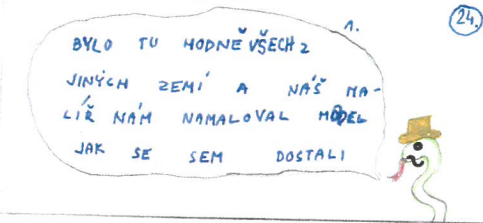 24.
1.
BYLO TU HODNĚ VŠECH Z
JINÝCH ZEMÍ A NÁŠ MA-
LÍŘ NÁM NAMALOVAL MODEL
JAK SE SEM DOSTALI